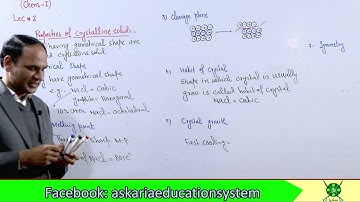 (Chem-I)
Lec # 2
Properties of Crystalline solids.
having geometrical shape are
crystalline solid
Shape
have geometrical shape
e.g. NaCl = Cubic
graphite = Hexagonal
10% Urea NaCl = octahedral
Melting point
Sharp M.P
of NaCl = 801C°
3) Cleavage plane
4) Habit of Crystal
Shape in which crystal is usually
grow is called habit of Crystal
NaCl = Cubic
5) Crystal growth
Fast cooling =
7- Symmetry
Facebook: askariaeducationsystem